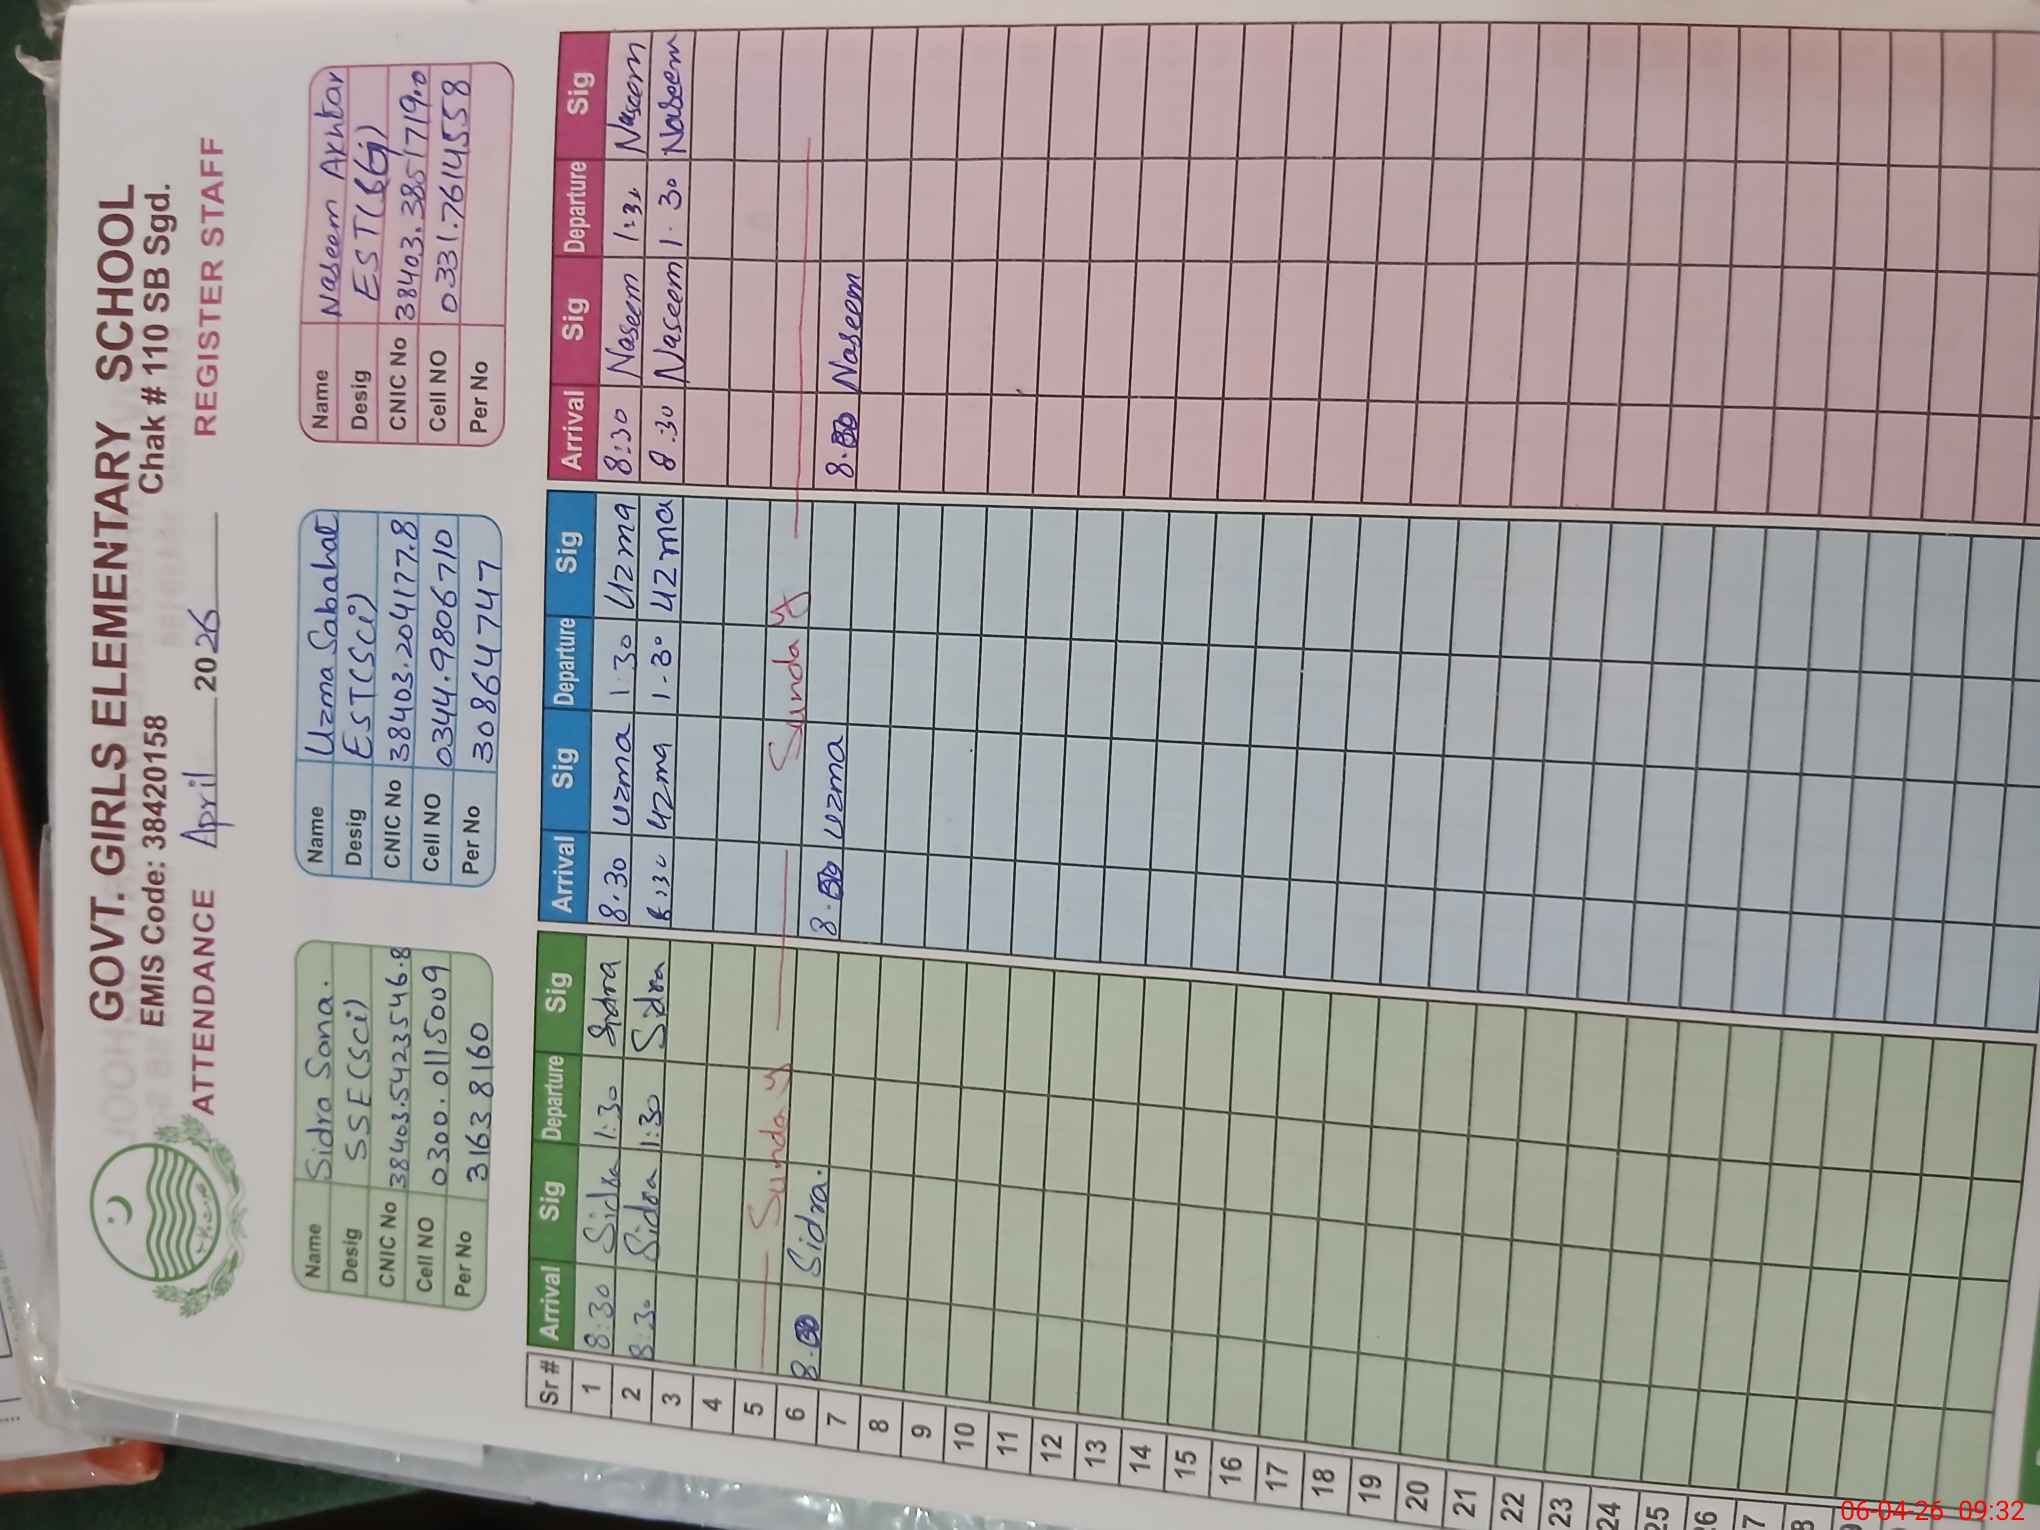 GOVT. GIRLS ELEMENTARY SCHOOL
EMIS Code: 38420158 Chak # 110 SB Sgd.
ATTENDANCE April 2026 REGISTER STAFF
Name Sidra Sana.
Desig SSE(Sci)
CNIC No 38403.5423546.8
Cell NO 0300.0115009
Per No 31638160
Name Uzma Sabahat
Desig EST(Sci)
CNIC No 38403.2204177.8
Cell NO 0344.9806710
Per No 30864747
Name Naseem Akhtar
Desig
CNIC No 38403.3851719.0
Cell NO 0331.7614558
Per No
Sr # Arrival Sig Departure Sig Arrival Sig Departure Sig Arrival Sig Departure Sig
1 8:30 Sidra 1:30 Sidra 8.30 uzma 1:30 uzma 8:30 Naseem Naseem
2 8:30 Sidra 1:30 Sidra 8:30 uzma 1.30 uzma 8.30 Naseem 1.30 Naseem
3
4
5 Sunday Sunday
6 Sidra. uzma Naseem
7
8
9
10
11
12
13
14
15
16
17
18
19
20
21
22
23
24
25
06-04-26 09:32